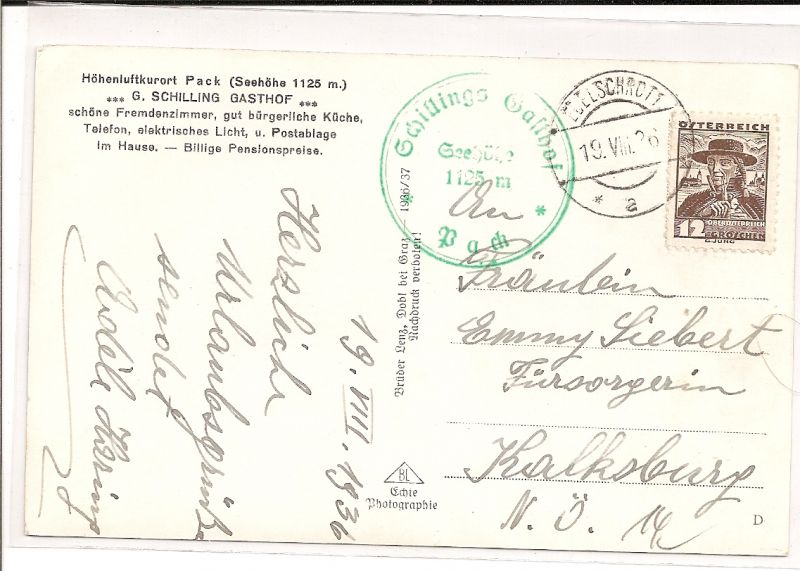 Höhenluftkurort Pack (Seehöhe 1125 m.)
*** G. SCHILLING GASTHOF ***
schöne Fremdenzimmer, gut bürgerliche Küche,
Telefon, elektrisches Licht, u. Postablage
im Hause. — Billige Pensionspreise.
19. VIII. 1936
Herzliche
Urlaubsgrüße
sendet
Adele
Brüder Lenz, Dobl bei Graz — 1936/37
Nachdruck verboten!
BL
Echte
Photographie
Schillings Gasthof
Seehöhe
1125 m
* Pack *
EDELSCHROTT
19. VIII. 36
* a
ÖSTERREICH
OBERÖSTERREICH
12 GROSCHEN
An
Fräulein
Emmy Siebert
Fürsorgerin
Kalksburg
N. Ö.
D